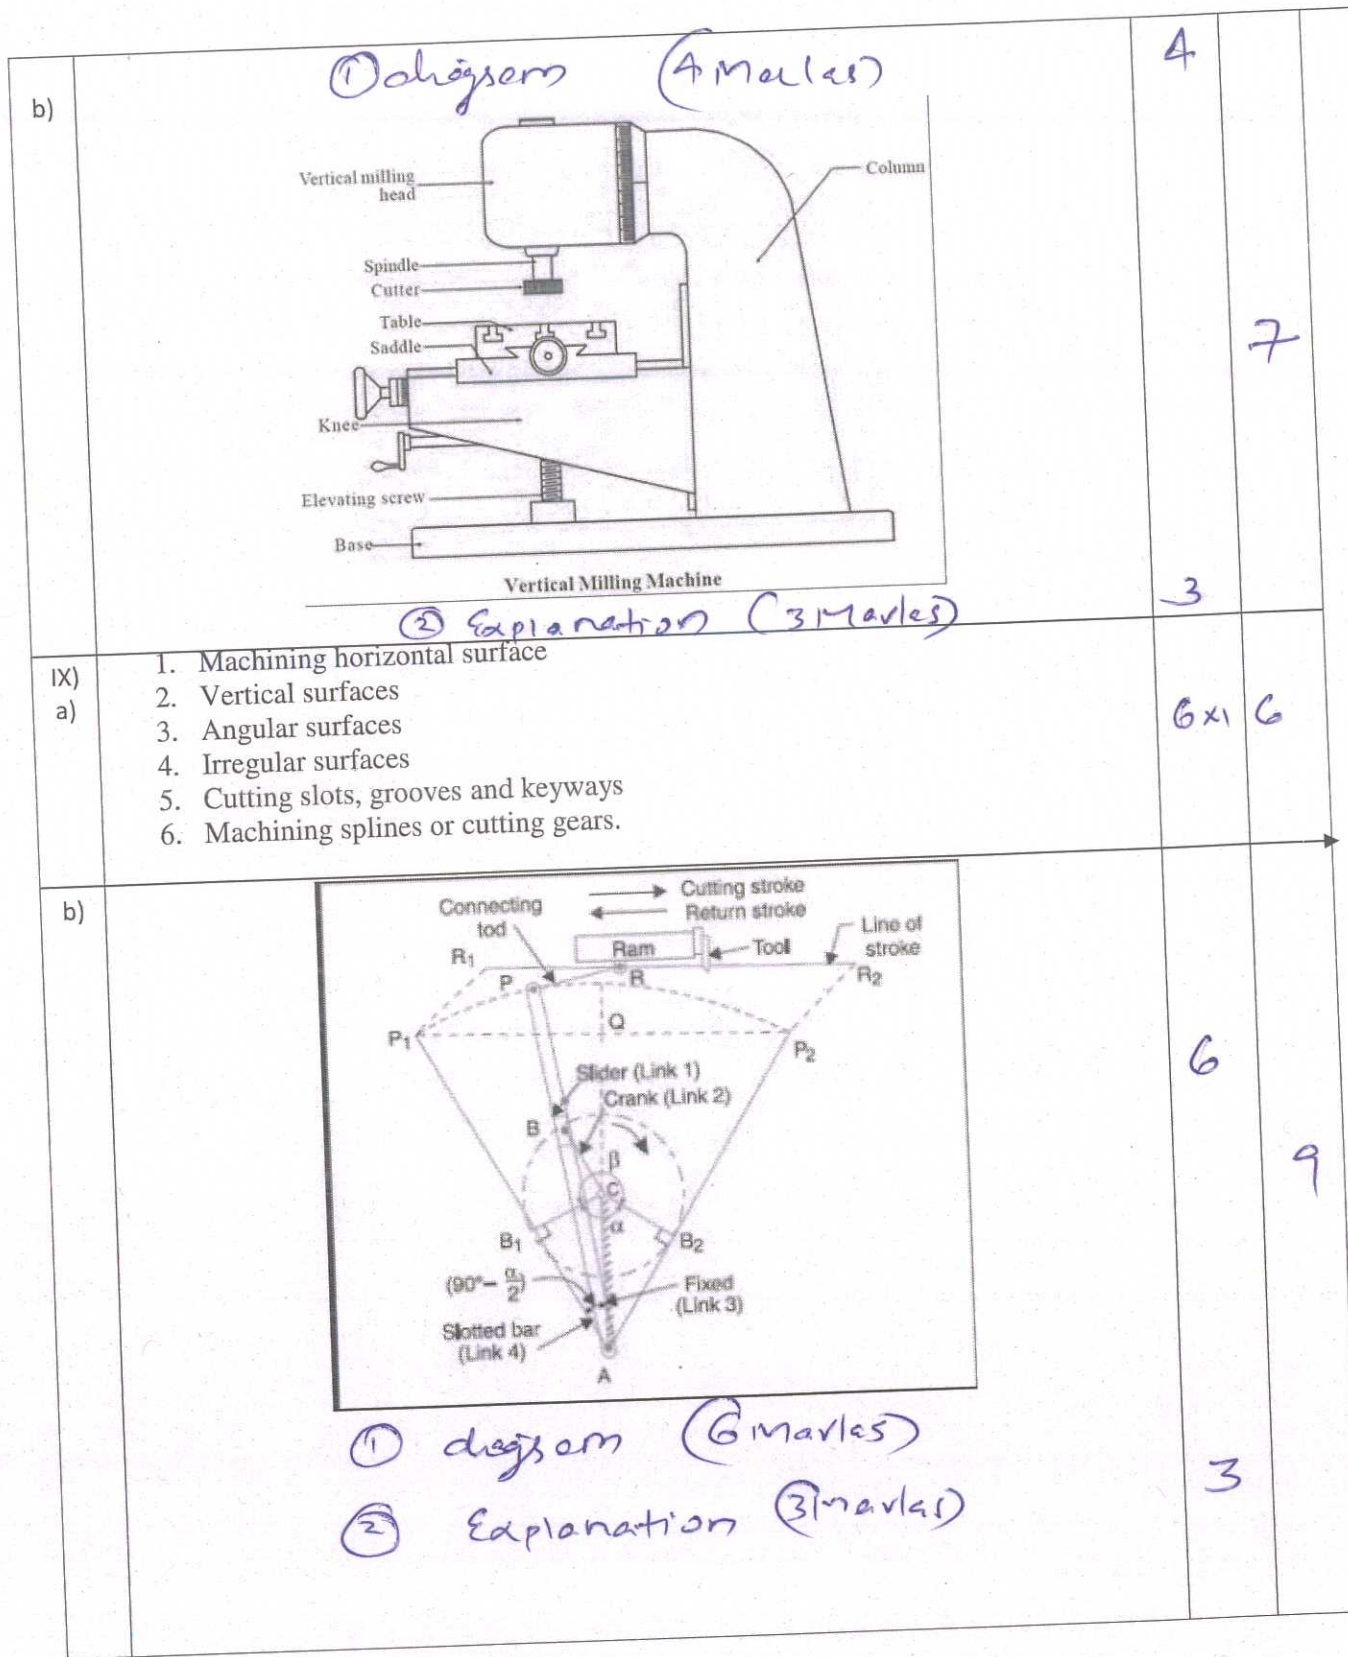 ① diagram (4 Marks)
4
b)
Vertical milling
head
Column
Spindle
Cutter
Table
Saddle
7
Knee
Elevating screw
Base
Vertical Milling Machine
② Explanation (3 Marks)
3
IX)
a)
1. Machining horizontal surface
2. Vertical surfaces
3. Angular surfaces
4. Irregular surfaces
5. Cutting slots, grooves and keyways
6. Machining splines or cutting gears.
6x1
6
b)
Cutting stroke
Return stroke
Connecting
tod
Line of
stroke
Ram
Tool
R1
P
R
R2
Q
P1
P2
Slider (Link 1)
Crank (Link 2)
B
β
C
α
B1
B2
(90°– α/2)
Fixed
(Link 3)
Slotted bar
(Link 4)
A
6
9
① diagram (6 marks)
② Explanation (3 marks)
3